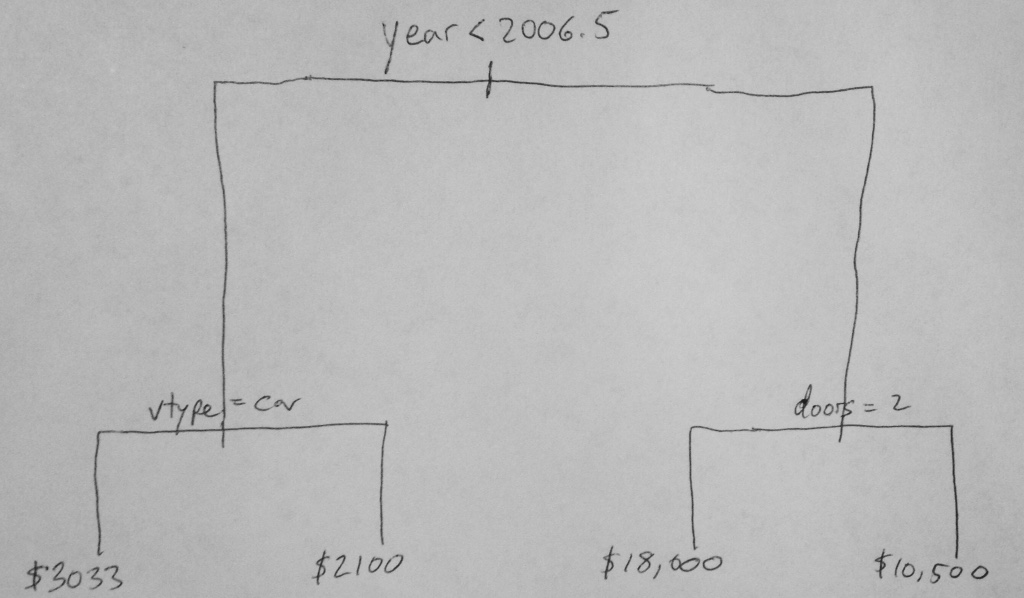 year < 2006.5
vtype = car
doors = 2
$3033
$2100
$18,000
$10,500